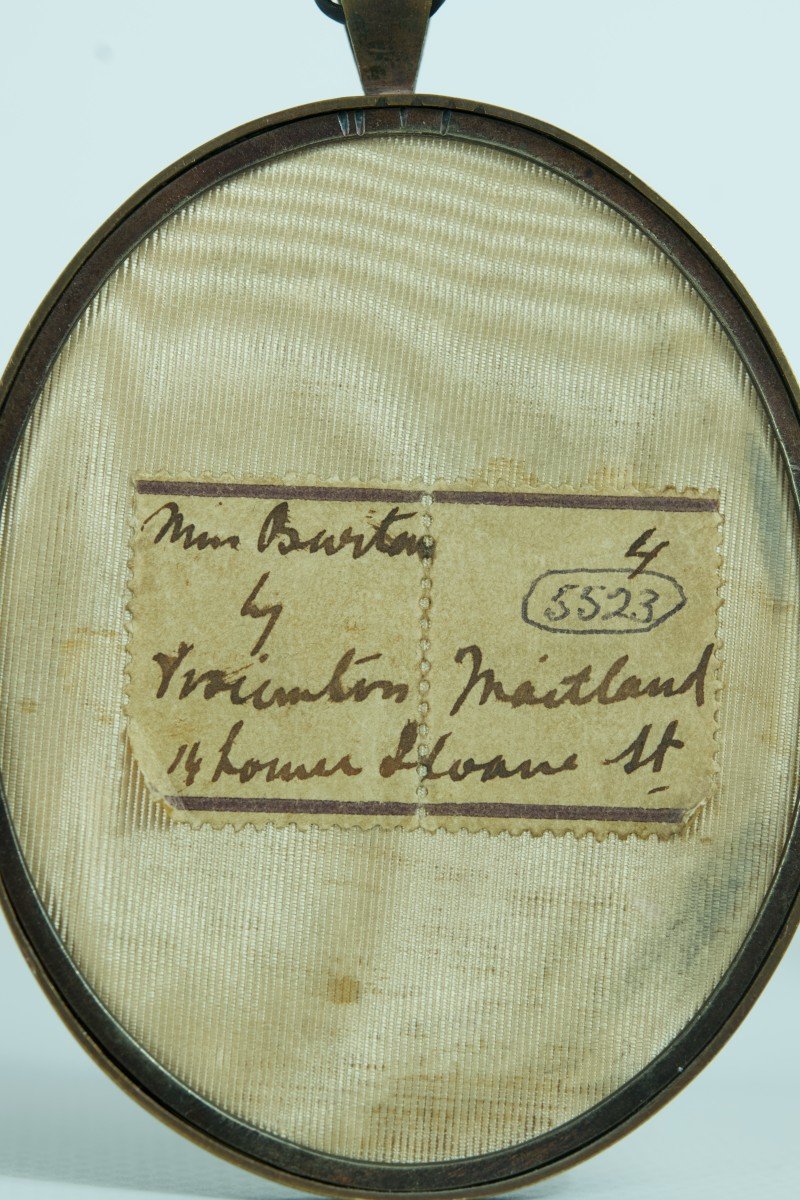 Miss Burton
4
by
5523
Maitland
14 Lower Sloane St